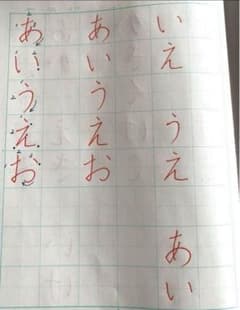 いえ
うえ
あい
あいうえお
あいうえお